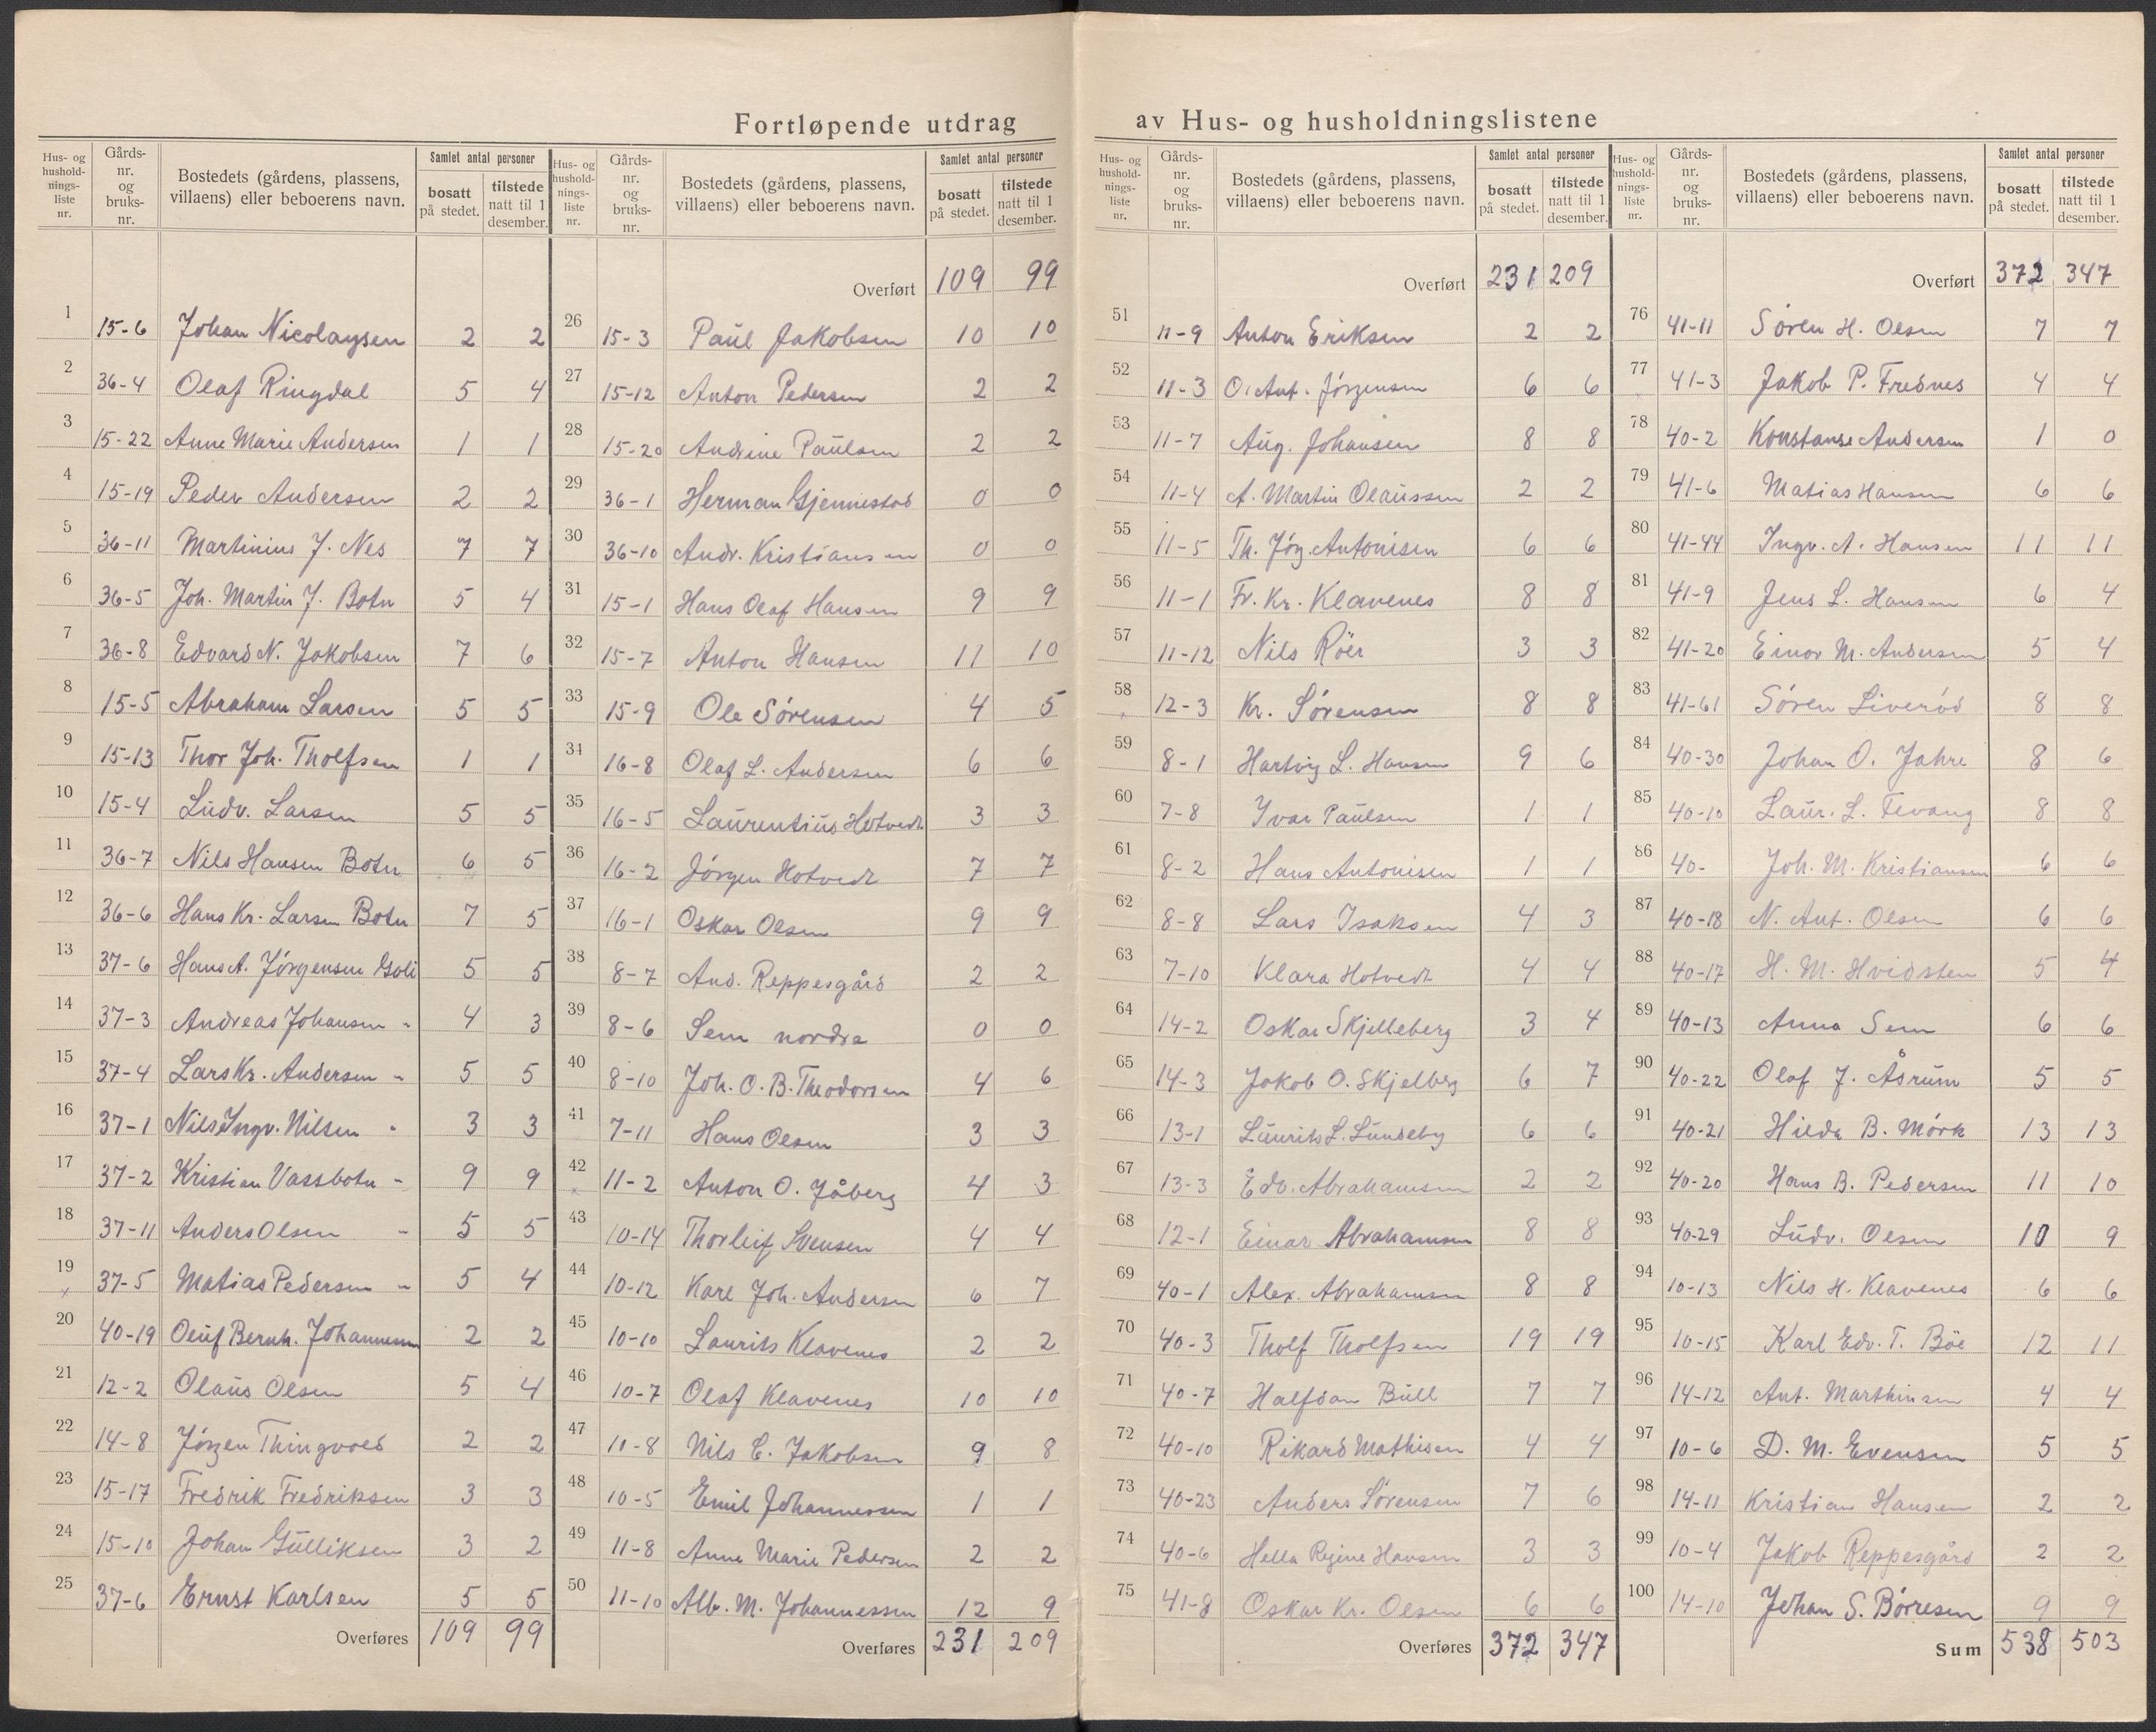 Fortløpende utdrag av Hus- og husholdningslistene
Hus- og husholdnings-liste nr. | Gårds-nr. og bruks-nr. | Bostedets (gårdens, plassens, villaens) eller beboerens navn. | Samlet antal personer | bosatt på stedet. | tilstede natt til 1 desember.
1 15-6 Johan Nicolaysen 2 2
2 36-4 Olaf Ringdal 5 4
3 15-22 Anne Marie Andersen 1 1
4 15-19 Peder Andersen 2 2
5 36-11 Martinius J. Nes 7 7
6 36-5 Joh. Martin J. Botn 5 4
7 36-8 Edvard N. Jakobsen 7 6
8 15-5 Abraham Larsen 5 5
9 15-13 Thor Joh. Tholfsen 1 1
10 15-4 Ludv. Larsen 5 5
11 36-7 Nils Hansen Botn 6 5
12 36-6 Hans Kr. Larsen Botn 7 5
13 37-6 Hans A. Jørgensen Goli 5 5
14 37-3 Andreas Johansen - 4 3
15 37-4 Lars Kr. Andersen - 5 5
16 37-1 Nils Ingv. Nilsen - 3 3
17 37-2 Kristian Vassbotn - 9 9
18 37-11 Anders Olsen - 5 5
19 37-5 Matias Pedersen - 5 4
20 40-19 Oluf Bernh. Johannesen 2 2
21 12-2 Olaus Olsen 5 4
22 14-8 Jörgen Thingvold 2 2
23 15-17 Fredrik Fredriksen 3 3
24 15-10 Johan Gulliksen 3 2
25 37-6 Ernst Karlsen 5 5
Overføres 109 99
Overført 109 99
26 15-3 Paul Jakobsen 10 10
27 15-12 Anton Pedersen 2 2
28 15-20 Andrine Paulsen 2 2
29 36-1 Herman Gjennestad 0 0
30 36-10 Andr. Kristiansen 0 0
31 15-1 Hans Olaf Hansen 9 9
32 15-7 Anton Hansen 11 10
33 15-9 Ole Sörensen 4 5
34 16-8 Olaf L. Andersen 6 6
35 16-5 Laurentius Hotvedt 3 3
36 16-2 Jörgen Hotvedt 7 7
37 16-1 Oskar Olsen 9 9
38 8-7 And. Reppesgård 2 2
39 8-6 Sem nordre 0 0
40 8-10 Joh. O. B. Theodorsen 4 6
41 7-11 Hans Olsen 3 3
42 11-2 Anton O. Jåberg 4 3
43 10-14 Thorleif Svensen 4 4
44 10-12 Karl Joh. Andersen 6 7
45 10-10 Laurits Klavenes 2 2
46 10-7 Olaf Klavenes 10 10
47 10-8 Nils E. Jakobsen 9 8
48 10-5 Emil Johannessen 1 1
49 11-8 Anne Marie Pedersen 2 2
50 11-10 Alb. M. Johannessen 12 9
Overføres 231 209
Overført 231 209
51 11-9 Anton Eriksen 2 2
52 11-3 O. Ant. Jörgensen 6 6
53 11-7 Aug. Johansen 8 8
54 11-4 A. Martin Olaussen 2 2
55 11-5 Th. Jörg. Antonisen 6 6
56 11-1 Fr. Kr. Klavenes 8 8
57 11-12 Nils Röer 3 3
58 12-3 Kr. Sörensen 8 8
59 8-1 Hartvig L. Hansen 9 6
60 7-8 Ivar Paulsen 1 1
61 8-2 Hans Antonisen 1 1
62 8-8 Lars Isaksen 4 3
63 7-10 Klara Hotvedt 4 4
64 14-2 Oskar Skjelleberg 3 4
65 14-3 Jakob O. Skjelberg 6 7
66 13-1 Laurits L. Lundeby 6 6
67 13-3 Edv. Abrahamsen 2 2
68 12-1 Einar Abrahamsen 8 8
69 40-1 Alex. Abrahamsen 8 8
70 40-3 Tholf Tholfsen 19 19
71 40-7 Halfdan Bull 7 7
72 40-10 Rikard Mathisen 4 4
73 40-23 Anders Sörensen 7 6
74 40-6 Hella Regine Hansen 3 3
75 41-8 Oskar Kr. Olsen 6 6
Overføres 372 347
Overført 372 347
76 41-11 Sören H. Olsen 7 7
77 41-3 Jakob P. Frednes 4 4
78 40-2 Konstanse Andersen 1 0
79 41-6 Matias Hansen 6 6
80 41-44 Ingv. A. Hansen 11 11
81 41-9 Jens L. Hansen 6 4
82 41-20 Einar M. Andersen 5 4
83 41-61 Sören Liveröd 8 8
84 40-30 Johan O. Jahre 8 6
85 40-10 Laur. L. Tevang 8 8
86 40- Joh. M. Kristiansen 6 6
87 40-18 N. Ant. Olsen 6 6
88 40-17 H. M. Hvidsten 5 4
89 40-13 Anna Sem 6 6
90 40-22 Olaf J. Åsrum 5 5
91 40-21 Hilda B. Mörk 13 13
92 40-20 Hans B. Pedersen 11 10
93 40-29 Ludv. Olsen 10 9
94 10-13 Nils H. Klavenes 6 6
95 10-15 Karl Edv. T. Böe 12 11
96 14-12 Ant. Marthinsen 4 4
97 10-6 D. M. Evensen 5 5
98 14-11 Kristian Hansen 2 2
99 10-4 Jakob Reppesgård 2 2
100 14-10 Johan S. Börresen 9 9
Sum 538 503